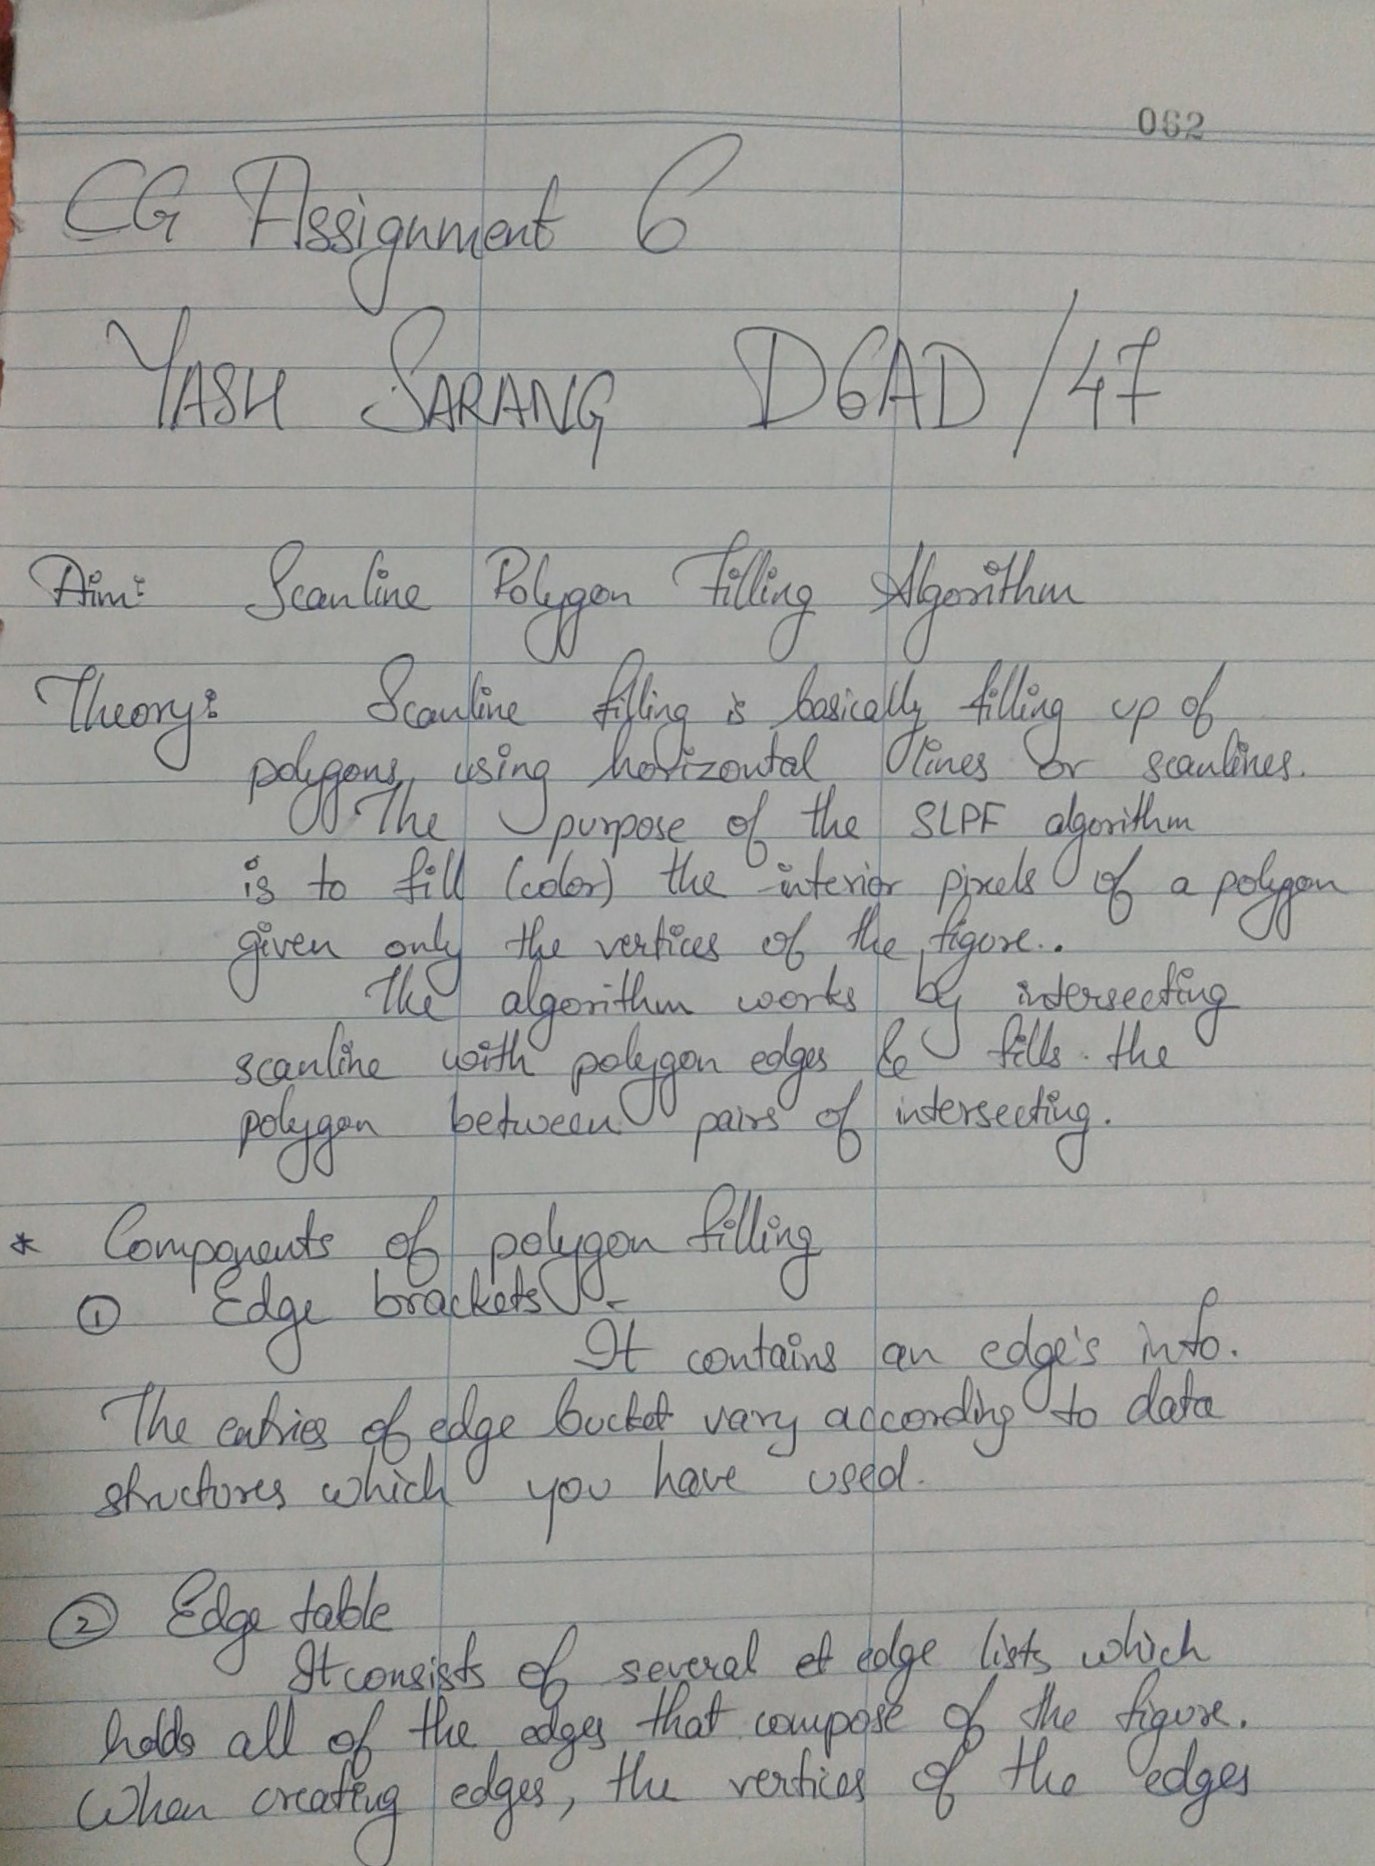 062
CG Assignment 6
YASH SARANG D6AD/47
Aim: Scanline Polygon Filling Algorithm
Theory: Scanline filling is basically filling up of
polygons using horizontal lines or scanlines.
The purpose of the SLPF algorithm
is to fill (color) the interior pixels of a polygon
given only the vertices of the figure..
The algorithm works by intersecting
scanline with polygon edges & fills the
polygon between pairs of intersecting.
* Components of polygon filling
① Edge brackets -
It contains an edge's info.
The entries of edge bucket vary according to data
structures which you have used.
② Edge table
It consists of several et edge lists which
holds all of the edges that compose of the figure.
When creating edges, the vertices of the edges